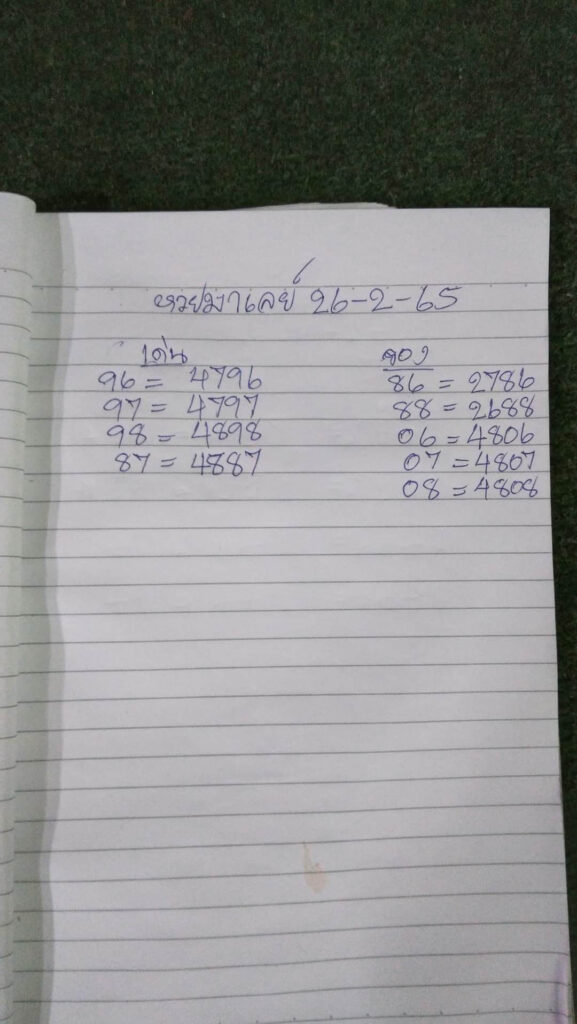 หวยมาเลย์ 26-2-65
เด่น
96 = 4796
97 = 4797
98 = 4898
87 = 4887
รอง
86 = 2786
88 = 2688
06 = 4806
07 = 4807
08 = 4808